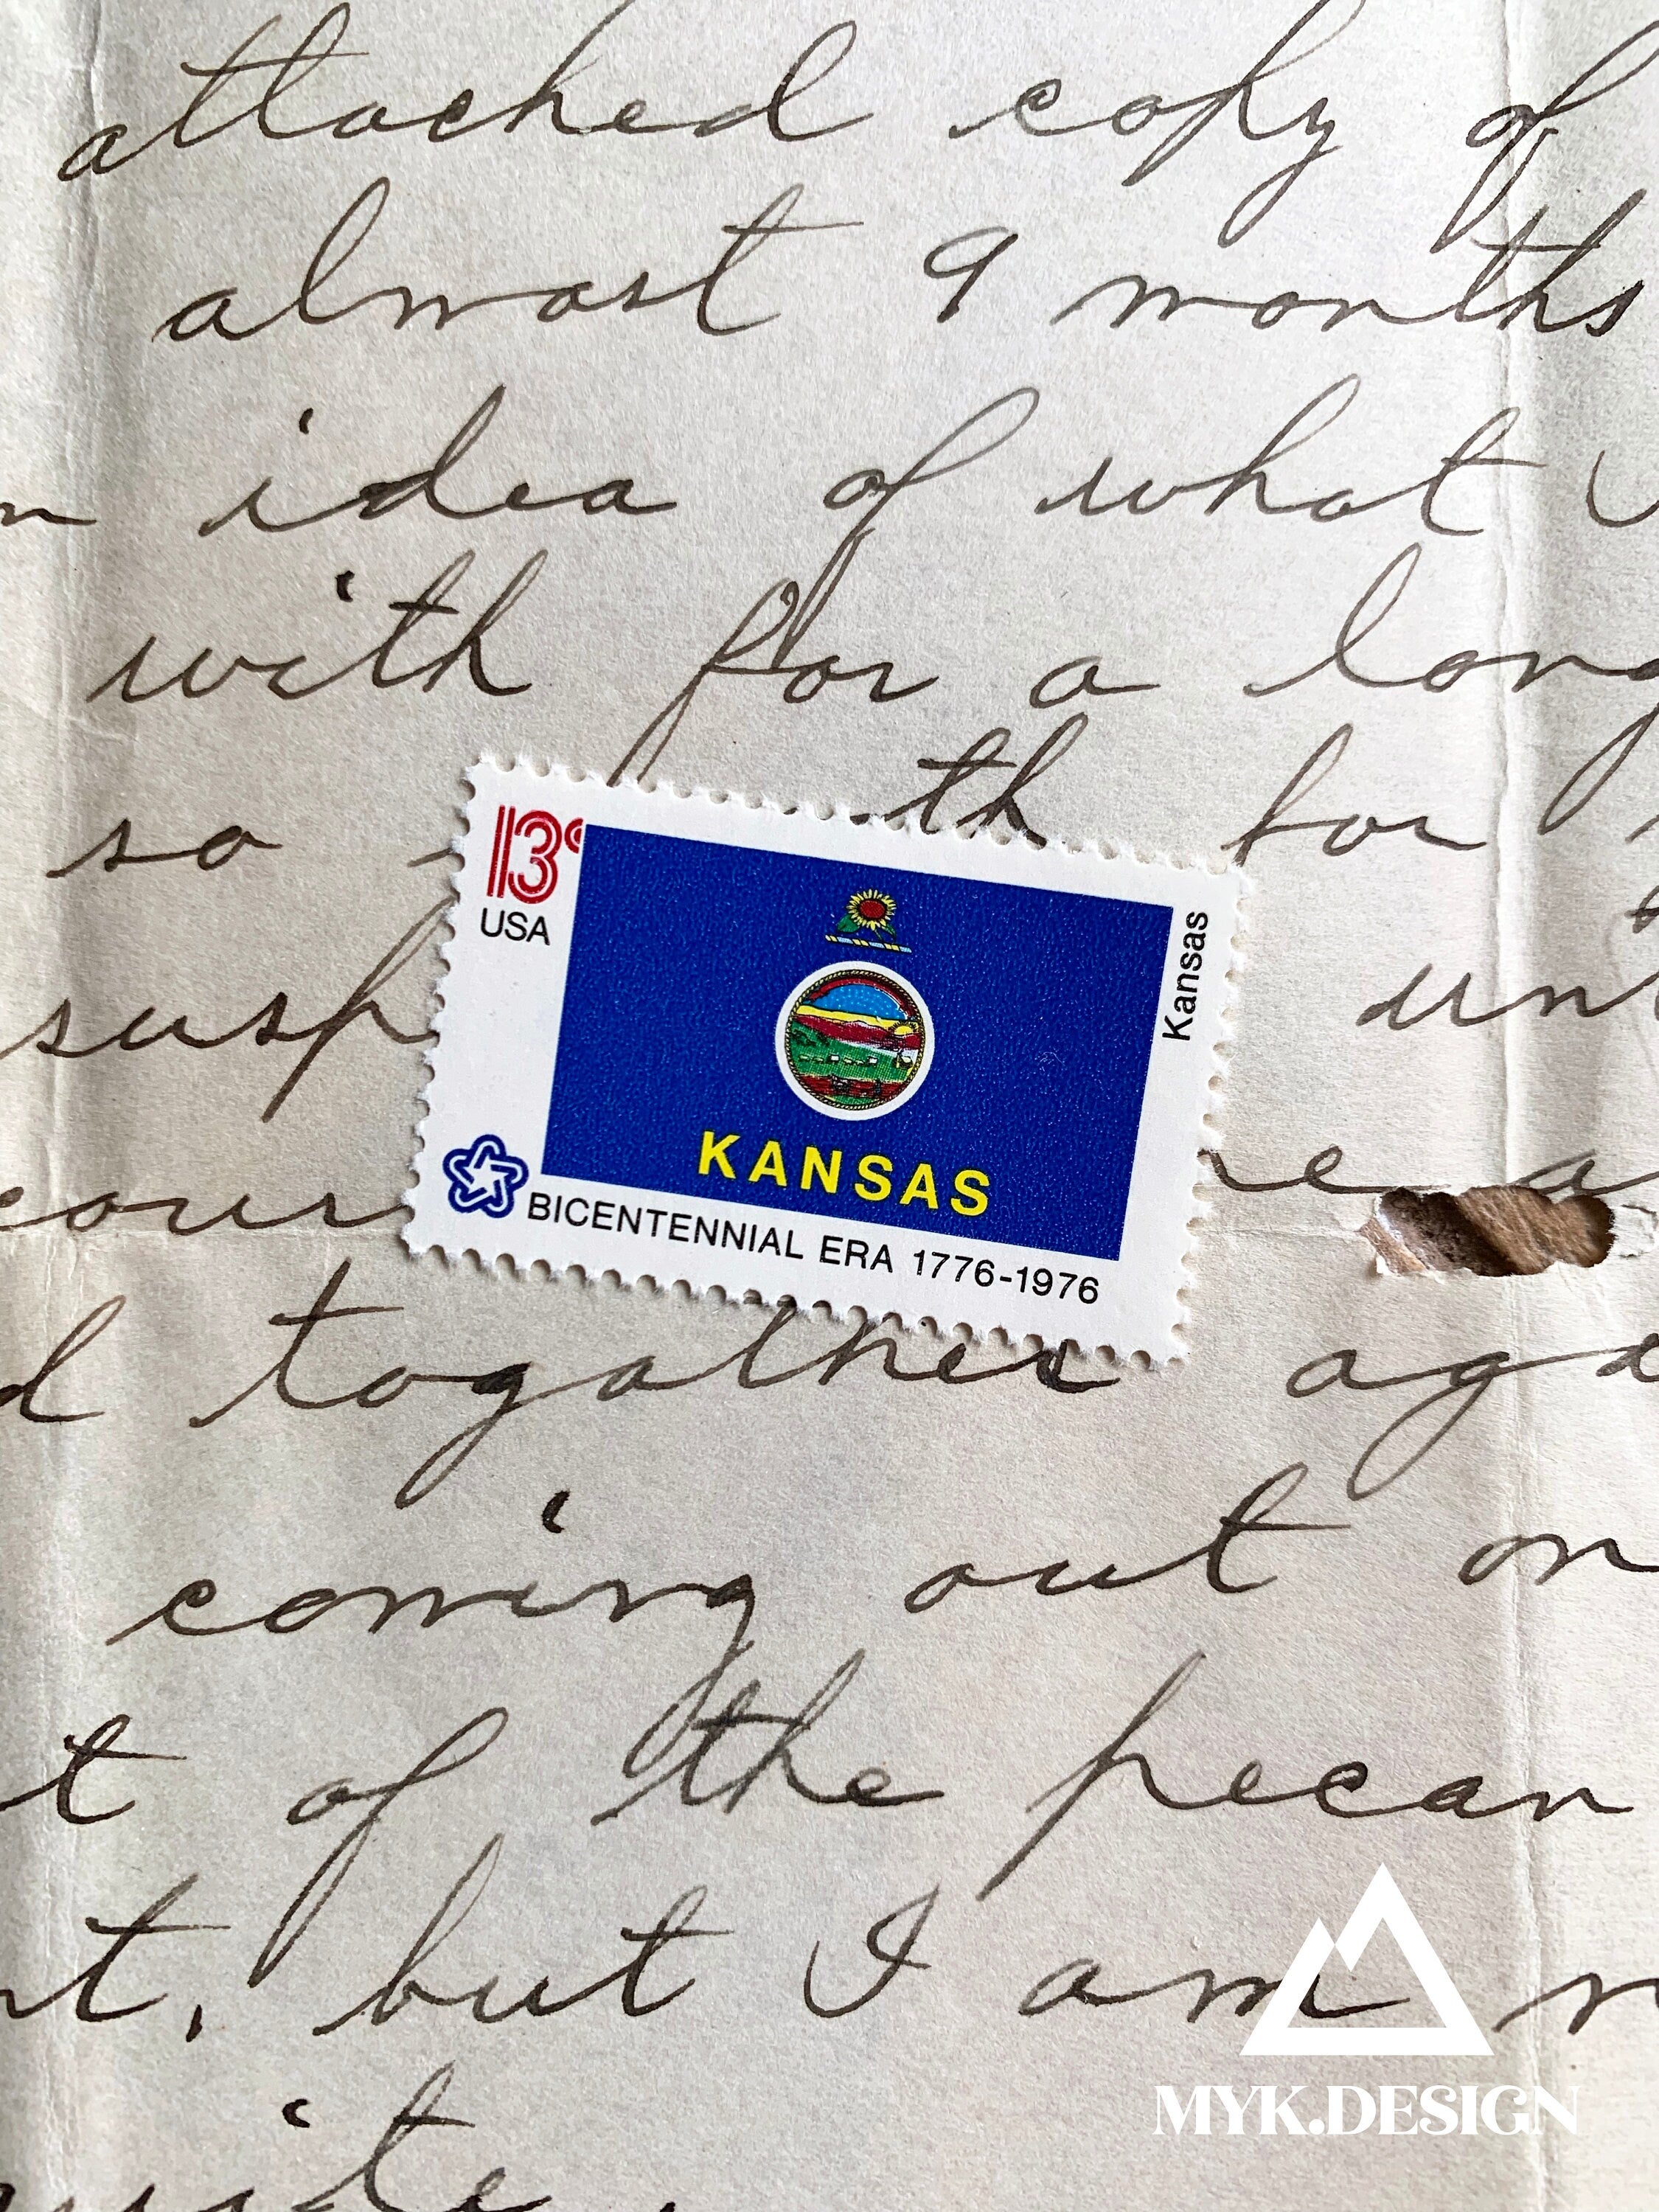 attached copy of
almost 9 months
idea of what I
with for a long
so th for
13c
USA
KANSAS
Kansas
BICENTENNIAL ERA 1776-1976
susp un
cour re a
d together aga
coming out on
t of the pecan
t, but I am n
quite
MYK.DESIGN